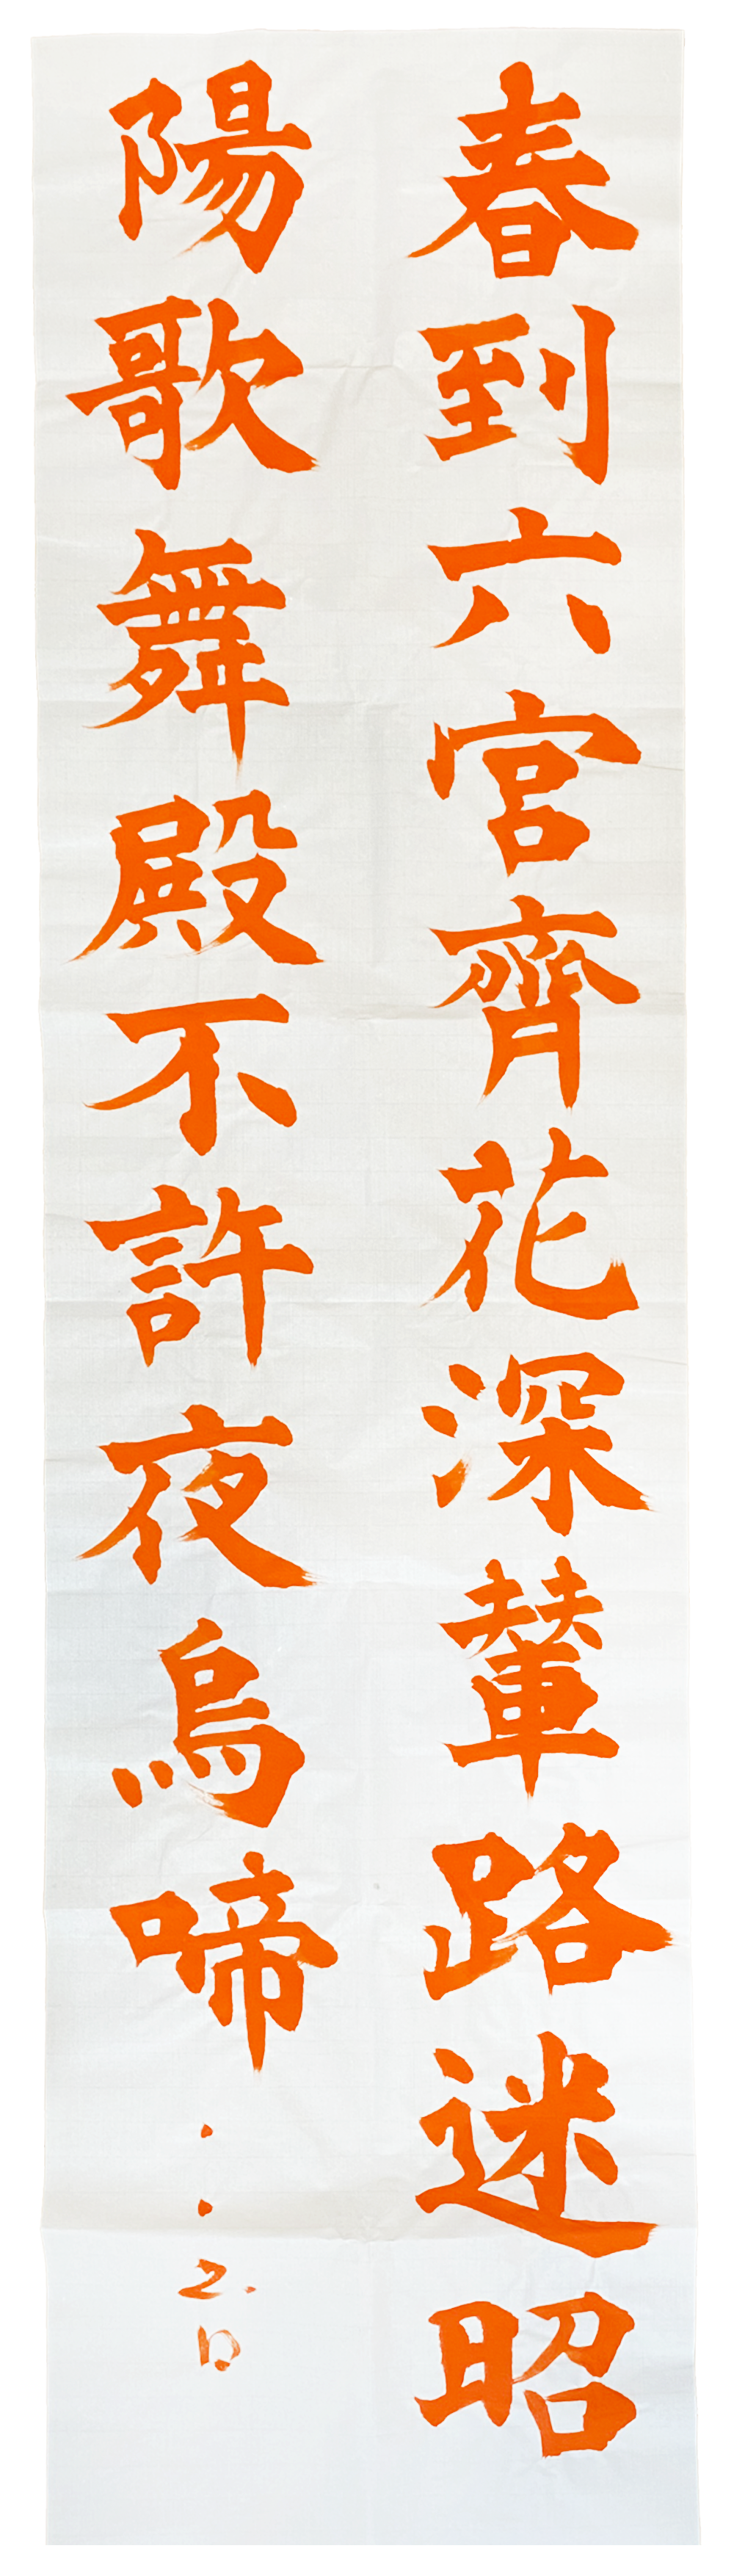 春到六宮齊花深輦路迷昭
陽歌舞殿不許夜烏啼